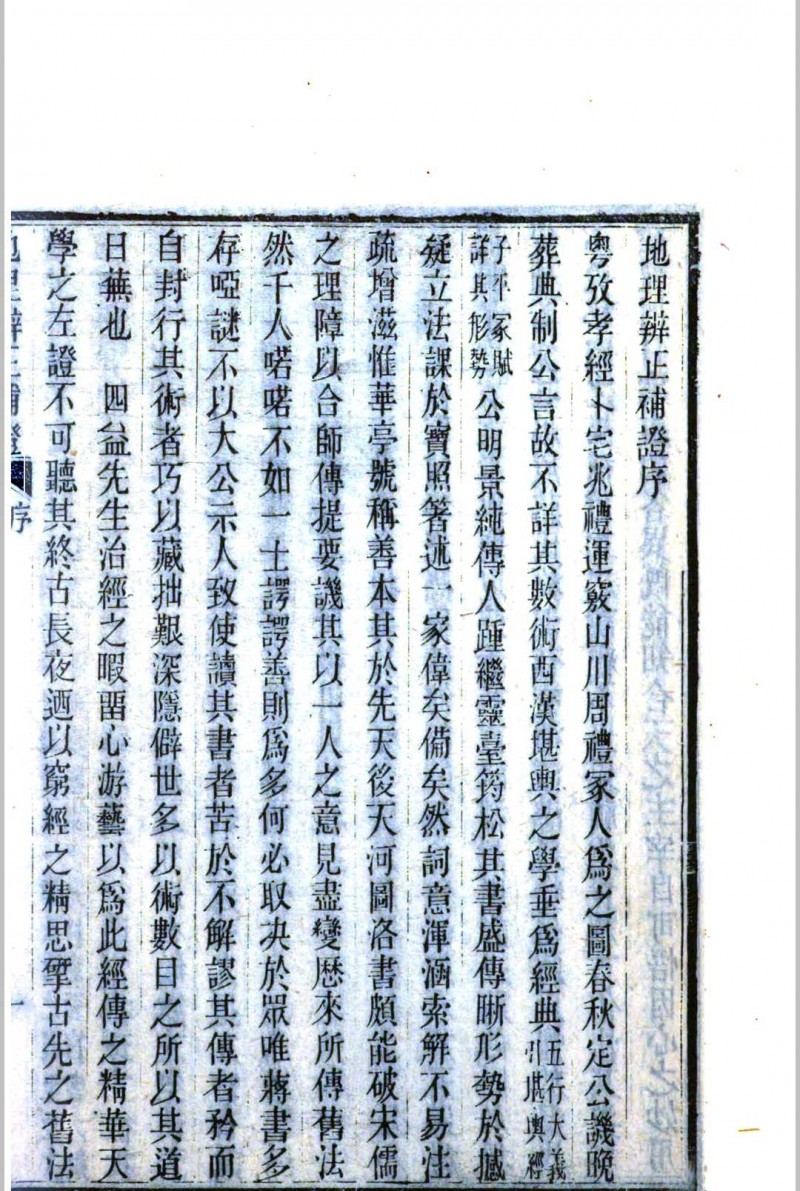 地理辨正補證序
粵攷孝經卜宅兆禮運竅山川周禮冢人爲之圖春秋定公譏晚
葬典制公言故不詳其數術西漢堪輿之學垂爲經典五行大義引堪輿經
子平冢賦詳其形勢公明景純傳人踵繼靈臺筠松其書盛傳晰形勢於撼
疑立法課於寶照箸述一家偉矣備矣然詞意渾涵索解不易注
疏增滋惟華亭號稱善本其於先天後天河圖洛書頗能破宋儒
之理障以合師傳提要譏其以一人之意見盡變歷來所傳舊法
然千人喏喏不如一士諤諤善則爲多何必取决於眾唯蔣書多
存啞謎不以大公示人致使讀其書者苦於不解謬其傳者矜而
自封行其術者巧以藏拙艱深隱僻世多以術數目之所以其道
日蕪也　四益先生治經之暇畱心游藝以爲此經傳之精華天
學之左證不可聽其終古長夜迺以窮經之精思揅古先之舊法
地理辨正補證　序　一